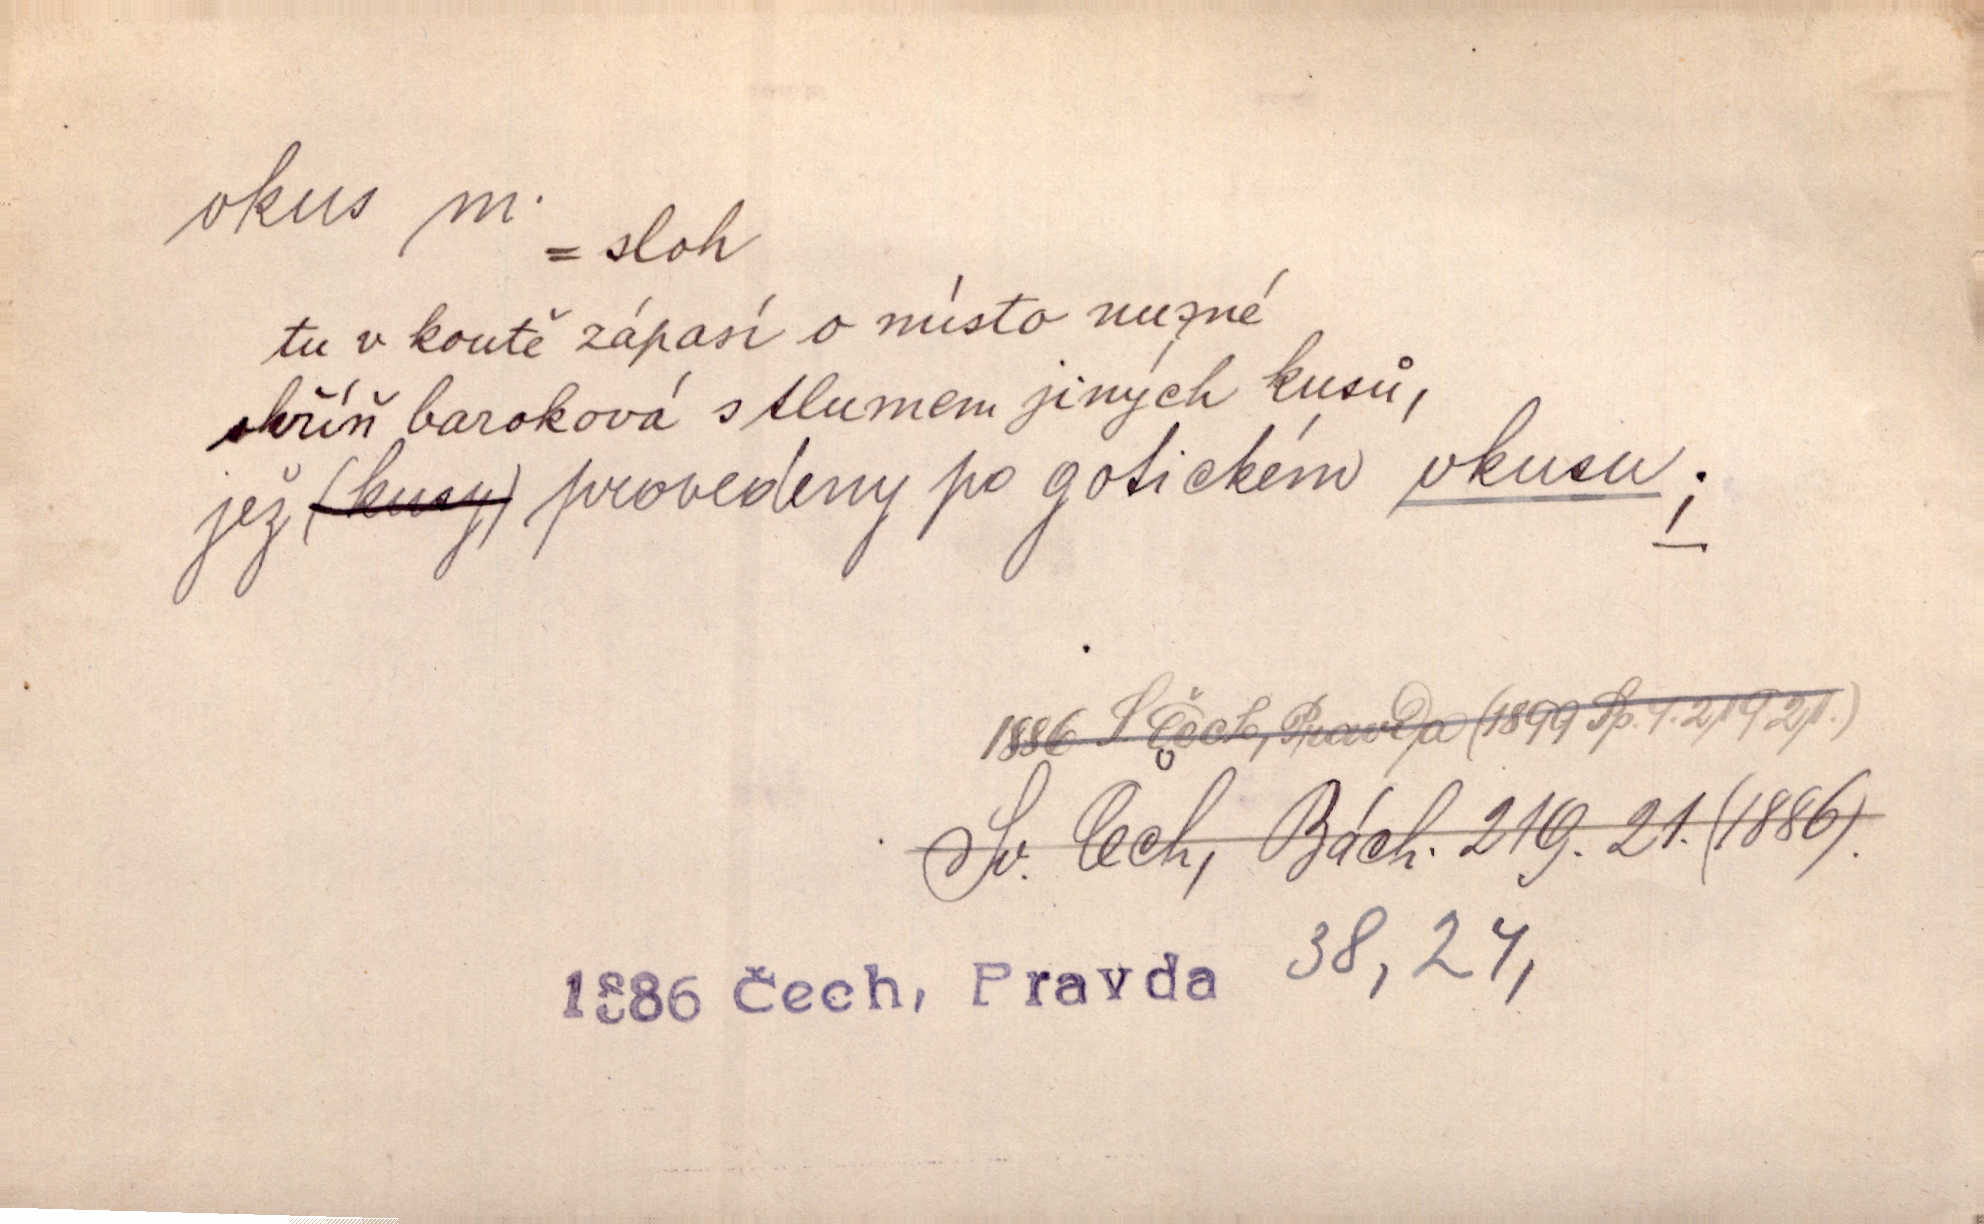 okus m.
= sloh
tu v koutě zápasí o místo nuzné
skříň baroková s tlumem jiných kusů,
jež (kusy) provedeny po gotickém okusu;
1886 S. Čech, Pravda (1899 Sp. 4. 219 21.)
Sv. Čech, Bách. 219. 21. (1886).
1886 Čech, Pravda 38, 24,